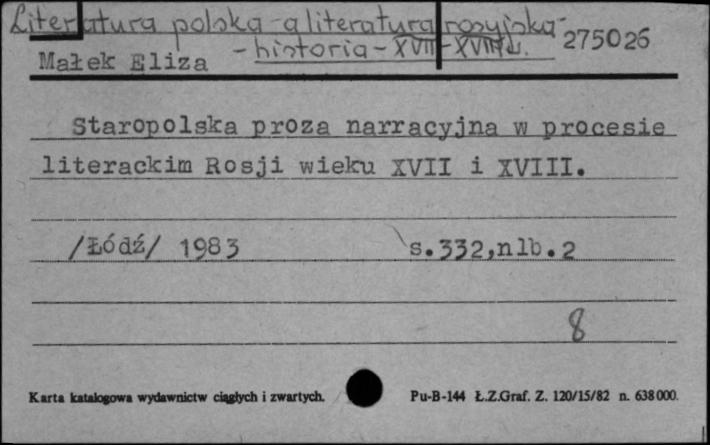 Literatura polska - a literatura rosyjska -
- historia - XVII - XVIII w. 275026
Małek Eliza
Staropolska proza narracyjna w procesie
literackim Rosji wieku XVII i XVIII.
/Łódź/ 1983 s.332,nlb.2
8
Karta katalogowa wydawnictw ciągłych i zwartych. Pu-B-144 Ł.Z.Graf. Z. 120/15/82 n. 638000.